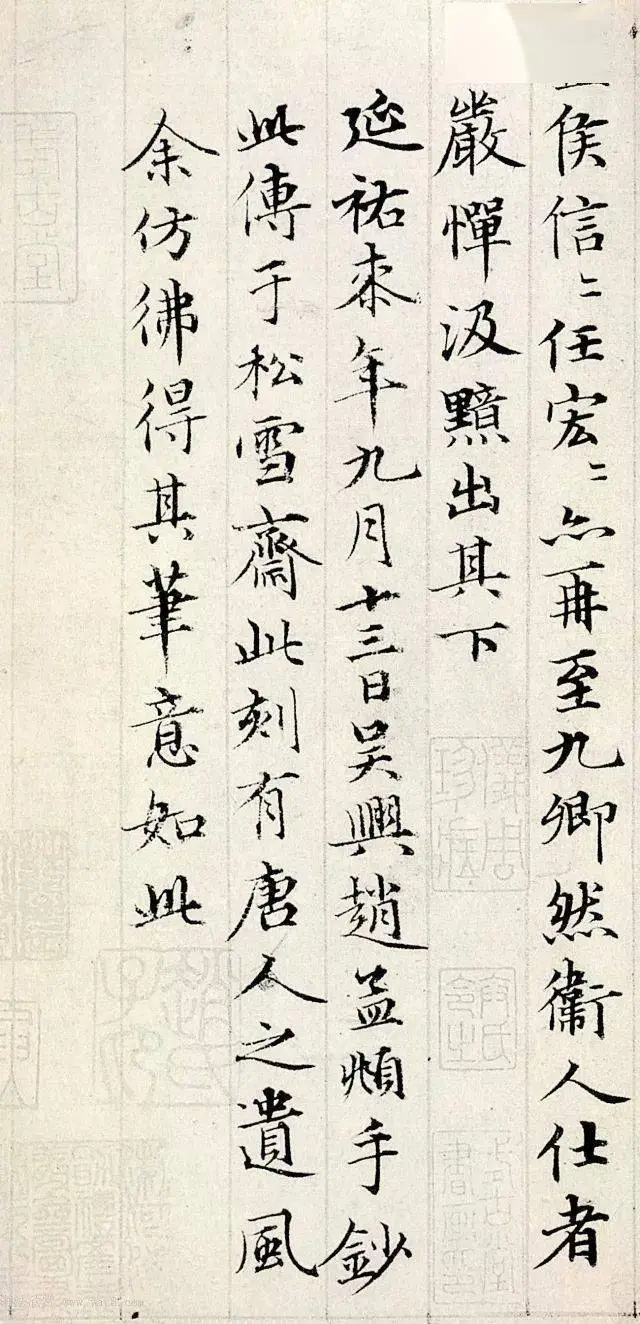 侯信〻任宏〻亦再至九卿然衛人仕者
嚴憚汲黯出其下
延祐柒年九月十三日吳興趙孟頫手鈔
此傳于松雪齋此刻有唐人之遺風
余仿彿得其筆意如此